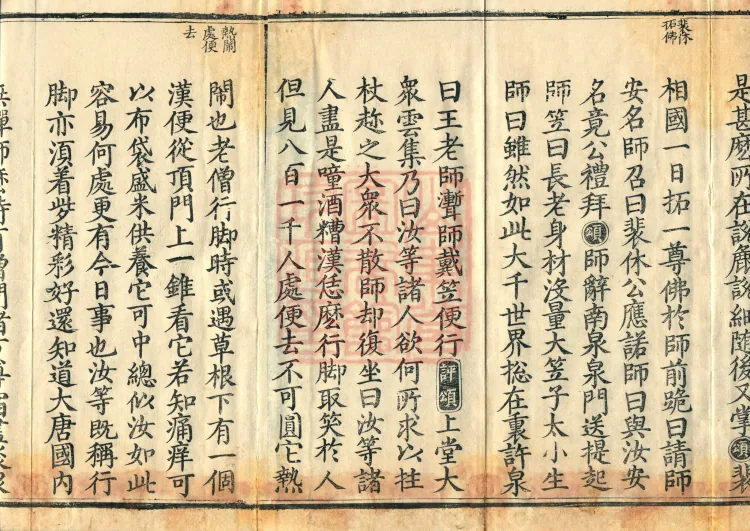 是甚麽所在說麁說細随後又掌頌裴
裴休
拓佛
相國一日拓一尊佛於師前跪曰請師
安名師召曰裴休公應諾師曰與汝安
名竟公禮拜頌師辭南泉泉門送提起
師笠曰長老身材没量大笠子太小生
師曰雖然如此大千世界揔在裏許泉
曰王老師䉶師戴笠便行評頌上堂大
衆雲集乃曰汝等諸人欲何所求以拄
杖趂之大衆不散師却復坐曰汝等諸
人盡是噇酒糟漢恁麽行脚取笑於人
但見八百一千人處便去不可圖它熱
熱閙
處便
去
閙也老僧行脚時或遇草根下有一個
漢便從頂門上一錐看它若知痛痒可
以布袋盛米供養它可中總似汝如此
容易何處更有今日事也汝等既稱行
脚亦湏着些精彩好還知道大唐國内